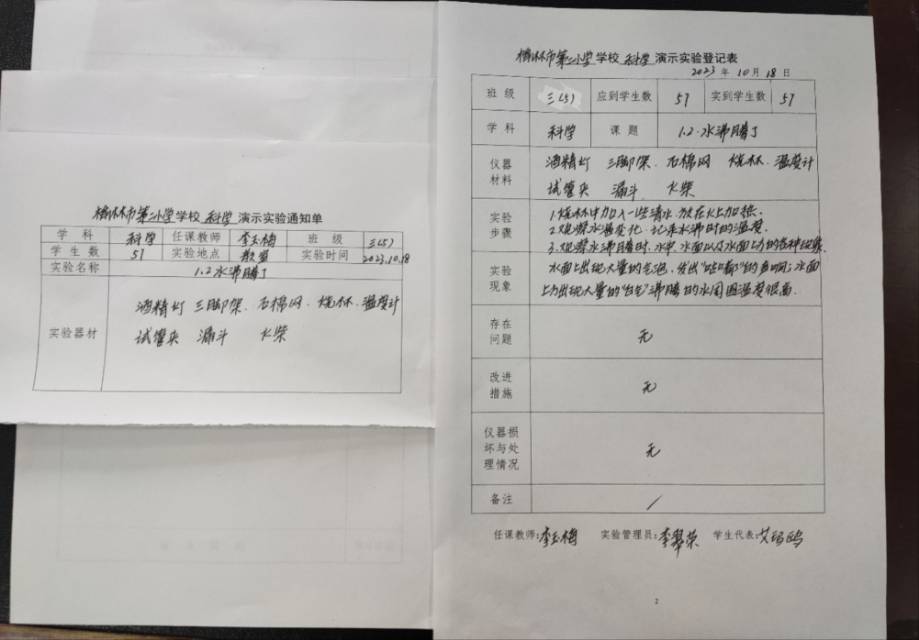 榆林市第二小学学校 科学 演示实验通知单
学科 科学 任课教师 李玉梅 班级 三(5)
学生数 51 实验地点 教室 实验时间 2023.10.18
实验名称 1.2水沸腾了
实验器材
酒精灯 三脚架、石棉网、烧杯、温度计
试管夹 漏斗 火柴
榆林市第二小学学校 科学 演示实验登记表
2023年10月18日
班级 三(5) 应到学生数 57 实到学生数 57
学科 科学 课题 1.2.水沸腾了
仪器材料
酒精灯 三脚架、石棉网、烧杯、温度计
试管夹 漏斗 火柴
实验步骤
1.烧杯中加入一些清水,放在火上加热。
2.观察水温变化,记录水沸腾时的温度。
3.观察水沸腾时,水中、水面以及水面上方的各种现象。
实验现象
水面上出现大量的气泡,发出"咕嘟"的声响;水面
上方出现大量的"白气"沸腾的水周围温度很高。
存在问题 无
改进措施 无
仪器损坏与处理情况 无
备注 /
任课教师:李玉梅 实验管理员:李翠荣 学生代表:艾
2